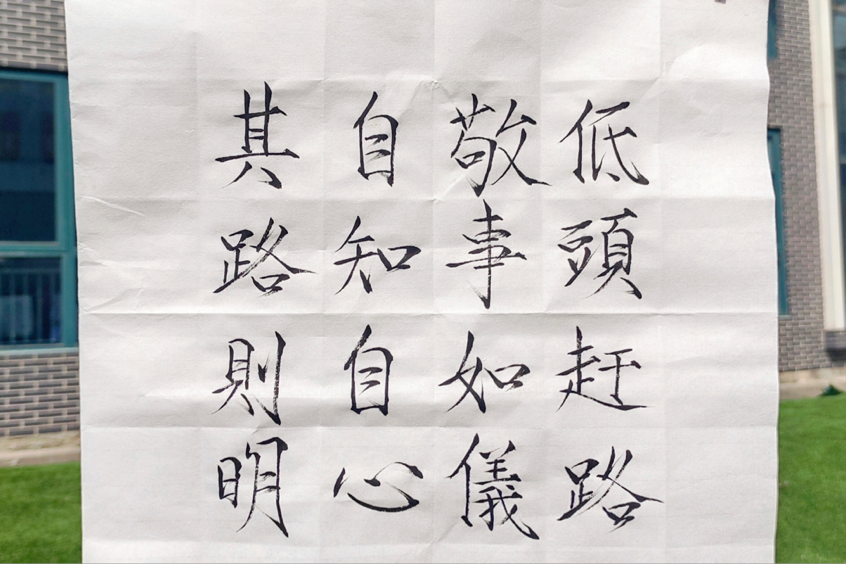 低頭赶路
敬事如儀
自知自心
其路則明